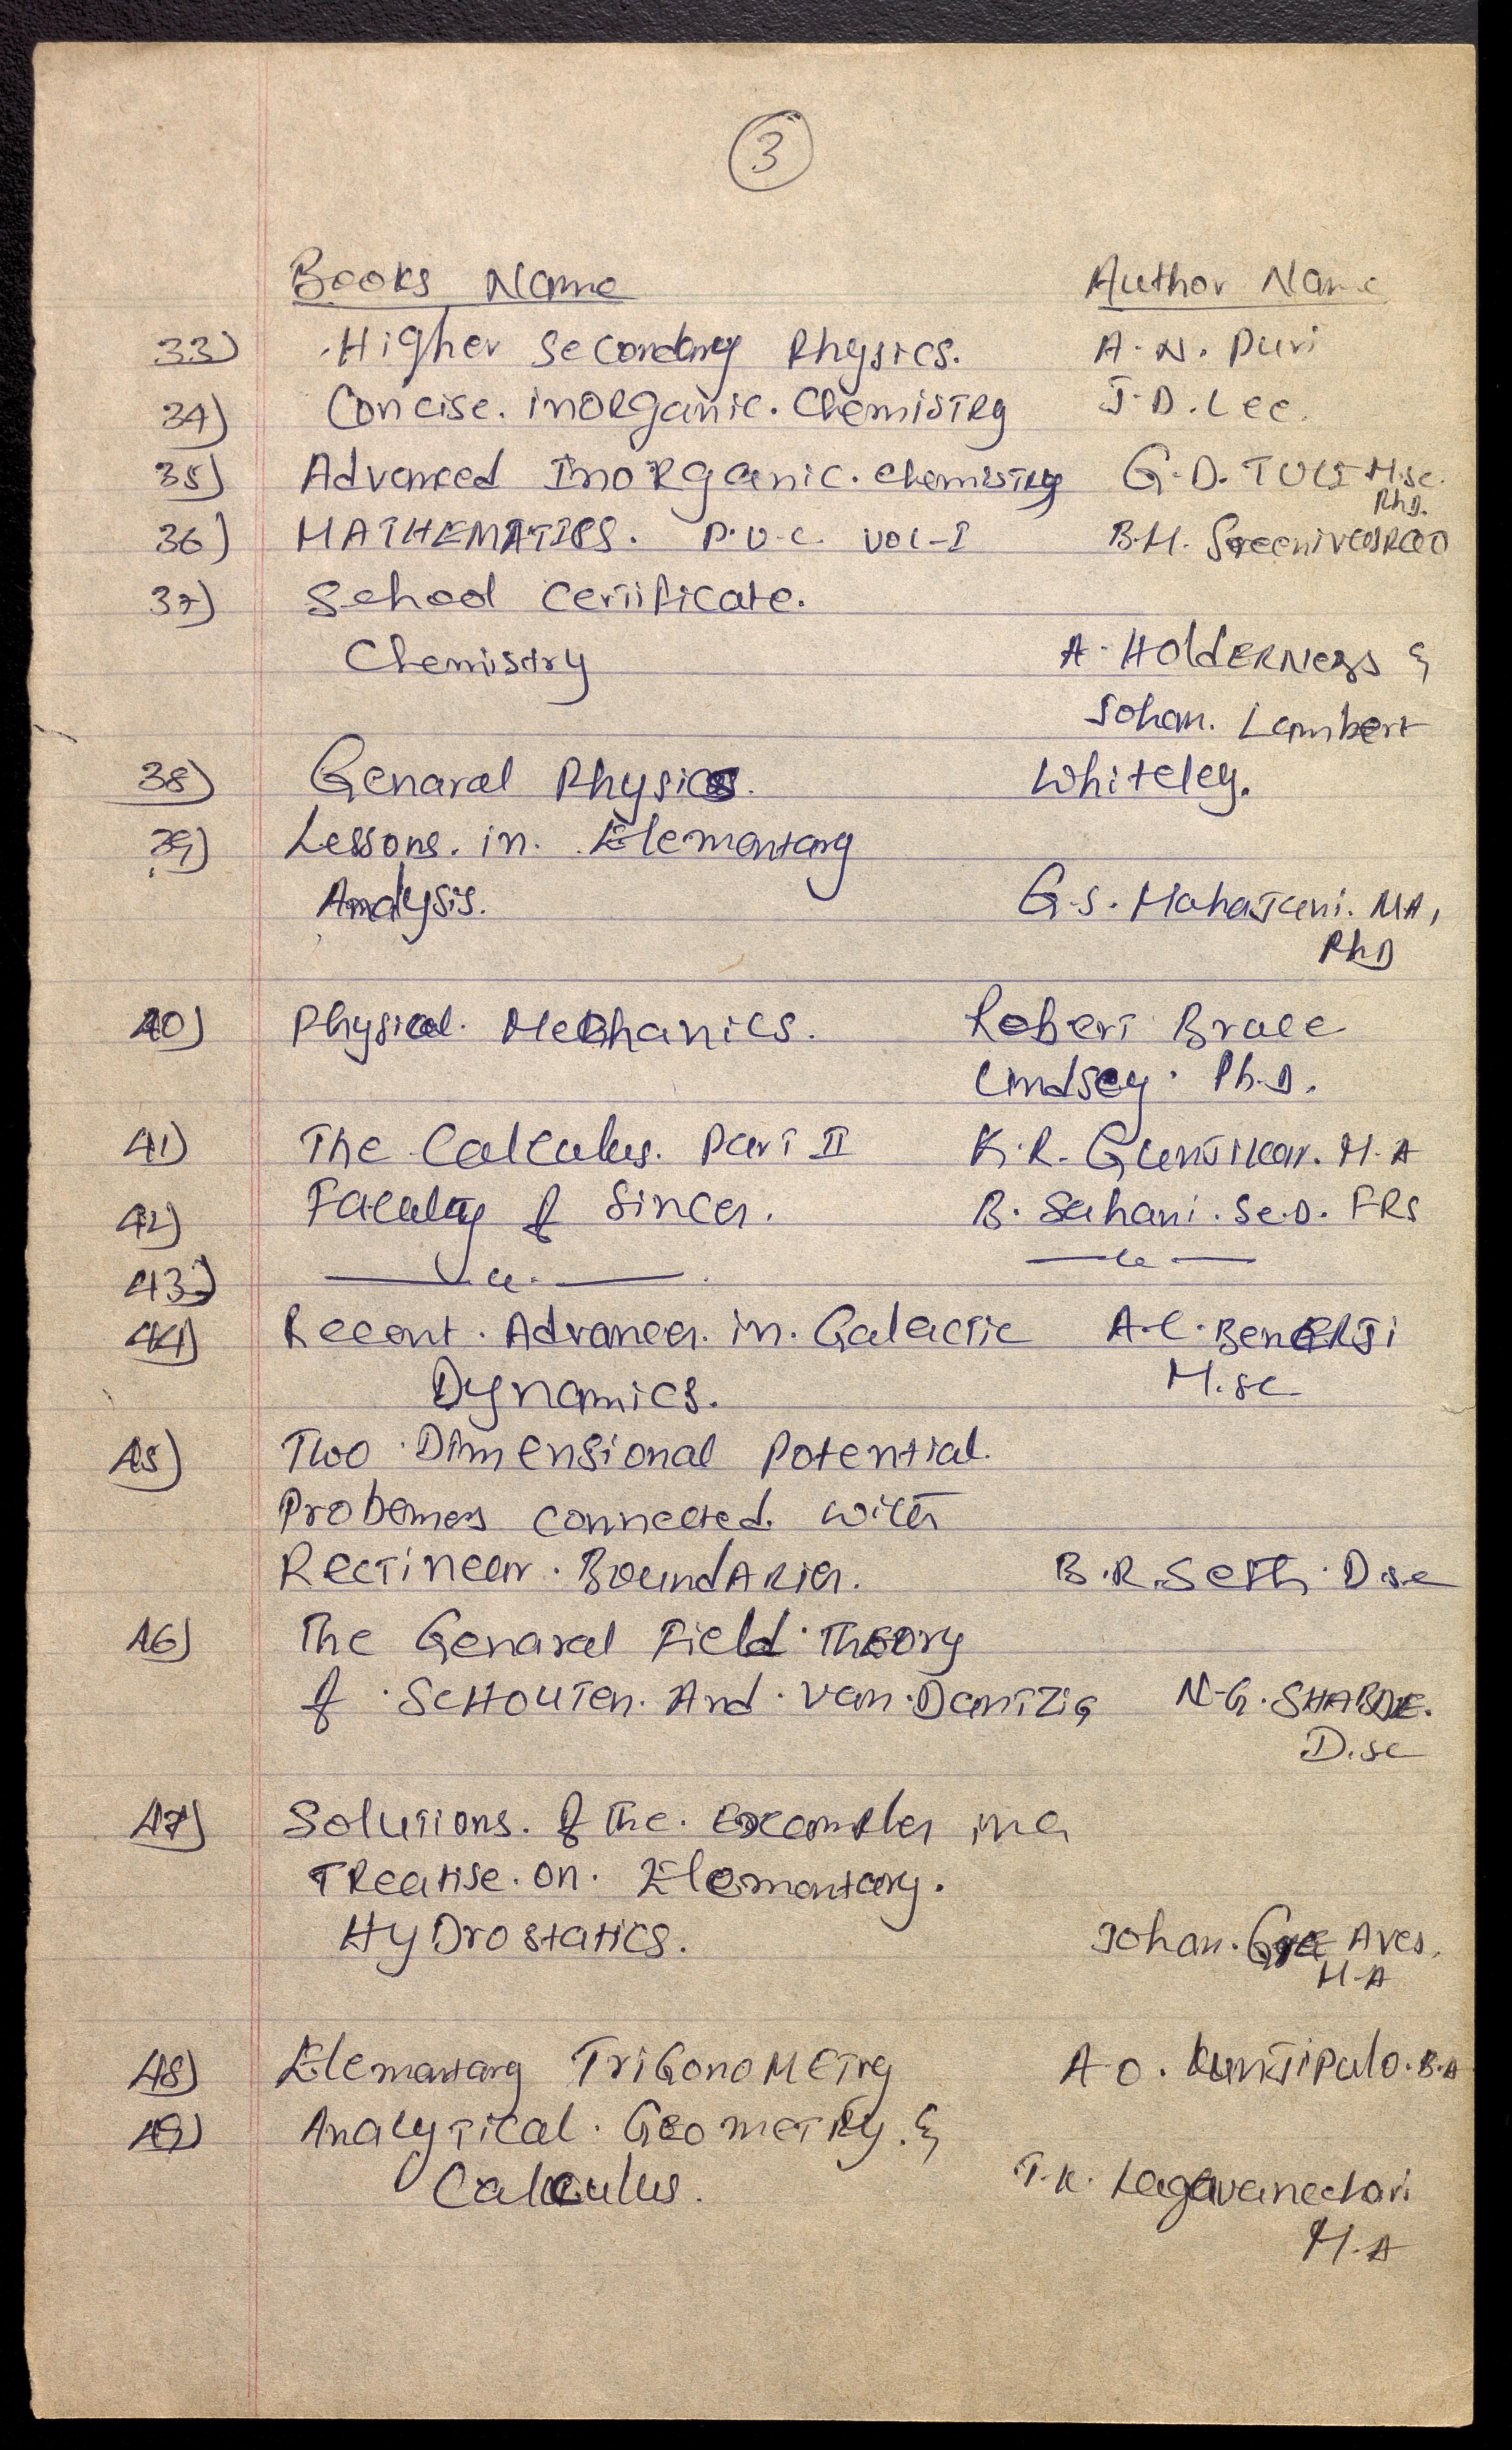 3
Books Name Author Name
33) Higher Secondary Physics. A. N. Puri
34) Concise. inORganic. ChemisTRy J. D. Lee.
35) Advanced InoRganic. ChemisTRy G. D. TULI M.sc.
Ph.D.
36) MATHEMATICS. P.U.C. VOL-I B.M. SreenivasRao
37) School Certificate.
Chemistry A. HOldERNess &
Johan. Lambert
38) Genaral Physics. Whiteley.
39) Lessons. in. Elementary
Analysis. G.S. Mahajani. MA,
PhD
40) Physical. Mechanics. Robert Bruce
Lindsey. Ph.D.
41) The Calculus. Part II K.R. Gunjikar. M.A
42) Faculty of Sinces. B. Sahani. Sc.D. FRS
43) — u — — u —
44) Recent. Advances. in. Galactic A.C. BenERJi
Dynamics. M.sc
45) Two Dimensional Potential.
Probemes connected. with
Rectinear. BoundARies. B.R. Seth. D.sc
46) The Genaral Field Theory
of SCHOUTen. And. Van. DanTZig N.G. SHABDE.
D.sc
47) Solutions. of The. Examples in a
TReatise. on. Elementary.
HyDrostatics. Johan. GreAves.
M.A
48) Elementary TriGonoMETry A. O. B.A
49) Analytical. GeomeTRy. &
Calculus. T.K. M.A